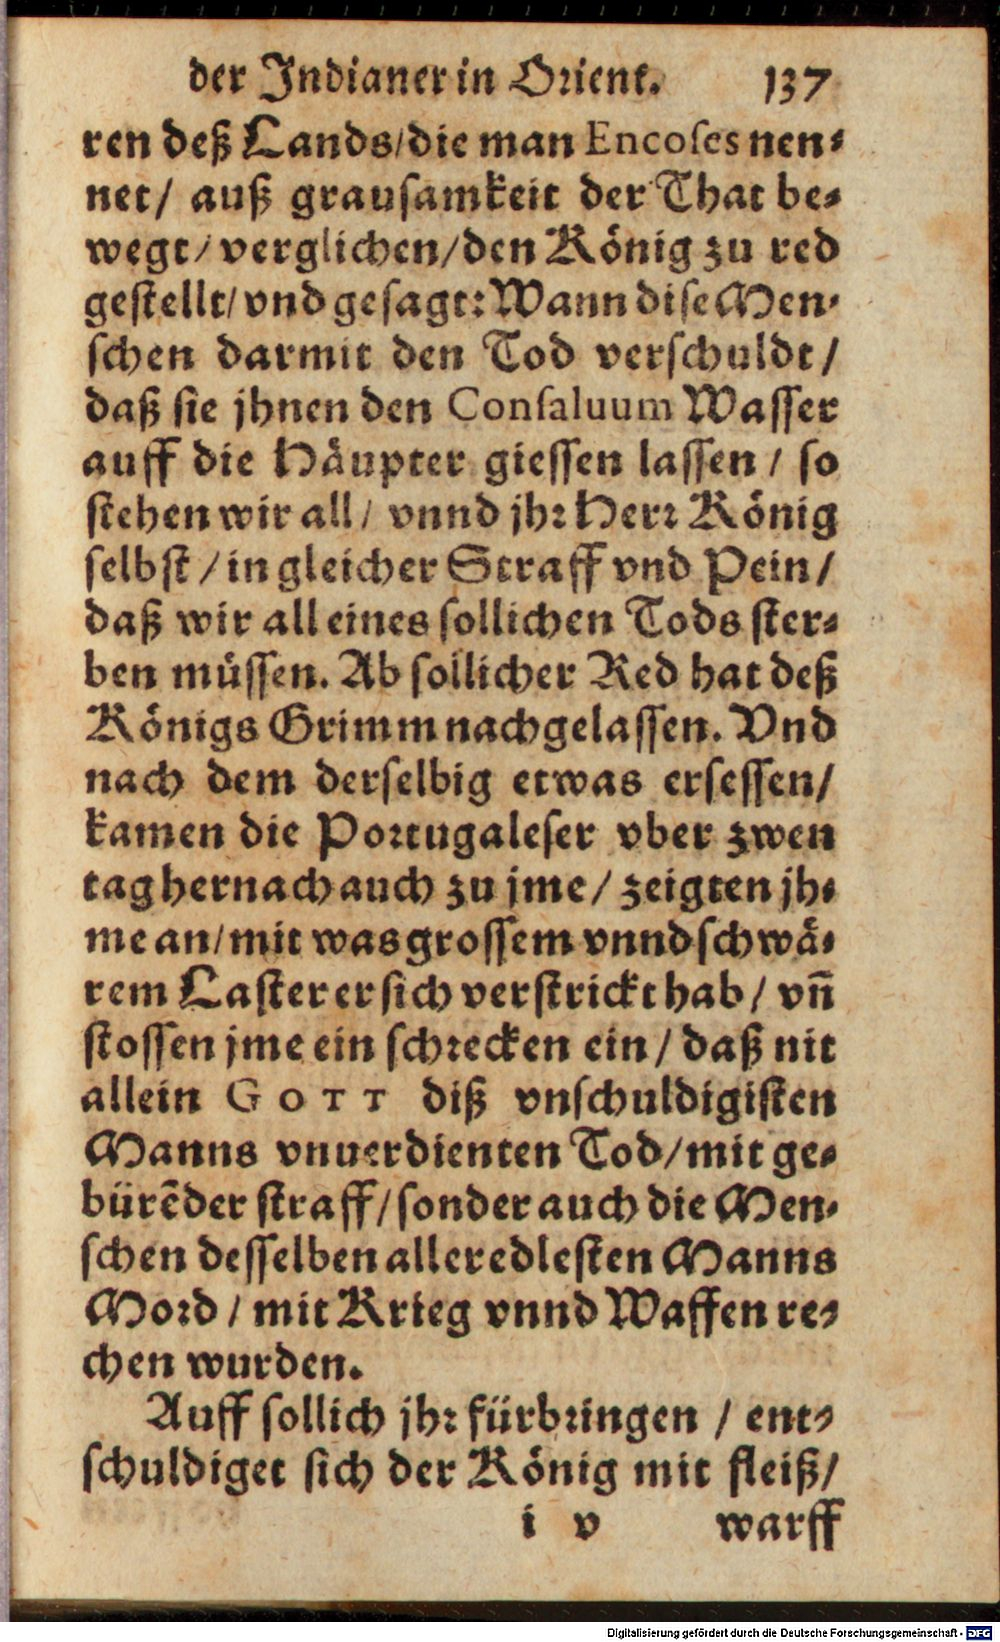 der Indianer in Orient. 137
ren deß Lands/die man Encoſes nen⸗
net/ auß grauſamkeit der That be⸗
wegt/ verglichen/den König zu red
geſtellt/ vnd geſagt: Wann diſe Men⸗
ſchen darmit den Tod verſchuldt/
daß ſie jhnen den Conſaluum Waſſer
auff die Häupter gieſſen laſſen / ſo
ſtehen wir all/ vnnd jhr Herr König
ſelbſt / in gleicher Straff vnd Pein/
daß wir all eines ſollichen Tods ſter⸗
ben müſſen. Ab ſollicher Red hat deß
Königs Grimm nachgelaſſen. Vnd
nach dem derſelbig etwas erſeſſen/
kamen die Portugaleſer vber zwen
tag hernach auch zu jme / zeigten jh⸗
me an/ mit was groſſem vnnd ſchwä⸗
rem Laſter er ſich verſtrickt hab / vn̄
ſtoſſen jme ein ſchrecken ein / daß nit
allein GOTT diß vnſchuldigiſten
Manns vnuerdienten Tod/ mit ge⸗
bürēder ſtraff/ ſonder auch die Men⸗
ſchen deſſelben alleredleſten Manns
Mord / mit Krieg vnnd Waffen re⸗
chen wurden.
Auff ſollich jhr fürbringen / ent⸗
ſchuldiget ſich der König mit fleiß/
i v warff
Digitalisierung gefördert durch die Deutsche Forschungsgemeinschaft - DFG